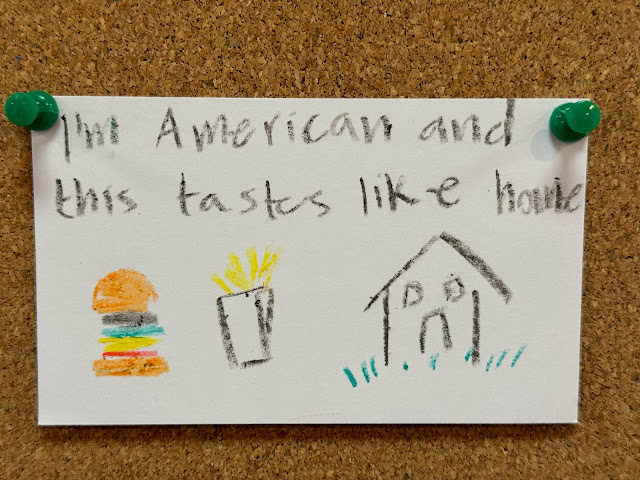 I'm American and
this tastes like home